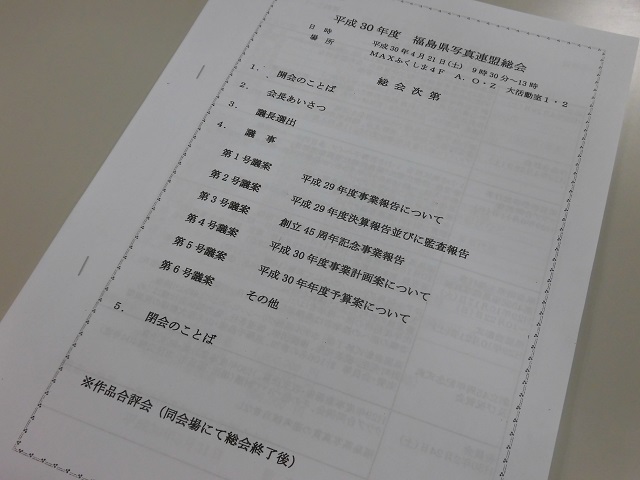 平成30年度 福島県写真連盟総会
日時 平成30年4月21日(土) 9時30分~13時
場所 MAXふくしま4F A.O・Z 大活動室1・2
総会次第
1. 開会のことば
2. 会長あいさつ
3. 議長選出
4. 議事
第1号議案 平成29年度事業報告について
第2号議案 平成29年度決算報告並びに監査報告
第3号議案 創立45周年記念事業報告
第4号議案 平成30年度事業計画案について
第5号議案 平成30年年度予算案について
第6号議案 その他
5. 閉会のことば
※作品合評会(同会場にて総会終了後)